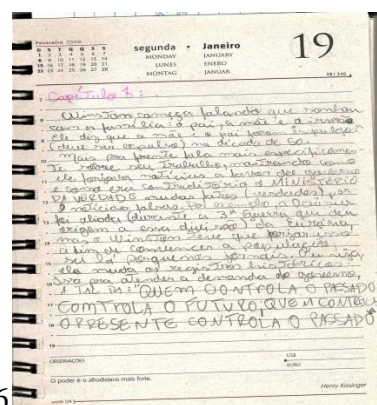 Fevereiro 2009
D S T Q Q S S
1 2 3 4 5 6 7
8 9 10 11 12 13 14
15 16 17 18 19 20 21
22 23 24 25 26 27 28
segunda • Janeiro
MONDAY JANUARY
LUNES ENERO
MONTAG JANUAR
19
19 | 346
Capítulo 3:
Winston começa falando que sonhou
com a família: o pai, a mãe e a irmã
ele diz que a mãe e o pai foram
(deve ser expulso) na década de 50.
Mais pra frente fala mais
sobre seu trabalho, mostrando como
ele forjava notícias a favor do governo
e como era contraditório o MINISTÉRIO
DA VERDADE mudar fatos (verdades) por
notícias falsas. Por exemplo, a Oceania
foi aliada (durante a 3ª Guerra que deu
origem a essa divisão) da Eurásia,
mas o Winston teve que forjar isso
convencer a população
sei lá porque nos jornais. Ou seja,
ele muda os registros históricos
só pra atender a demanda do governo,
A TAL DA: "QUEM CONTROLA O PASSADO
COMTROLA O FUTURO; QUEM CONTROLA
O PRESENTE CONTROLA O PASSADO"
OBSERVAÇÕES
US$
EURO
O poder é o afrodisíaco mais forte.
Henry Kissinger
week 04
6